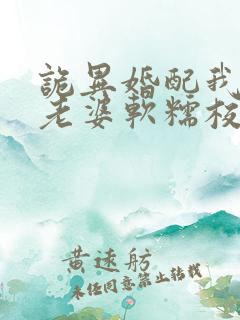 詭異婚配我
老婆軟糯校
黄遠舫
未經同意禁止轉載